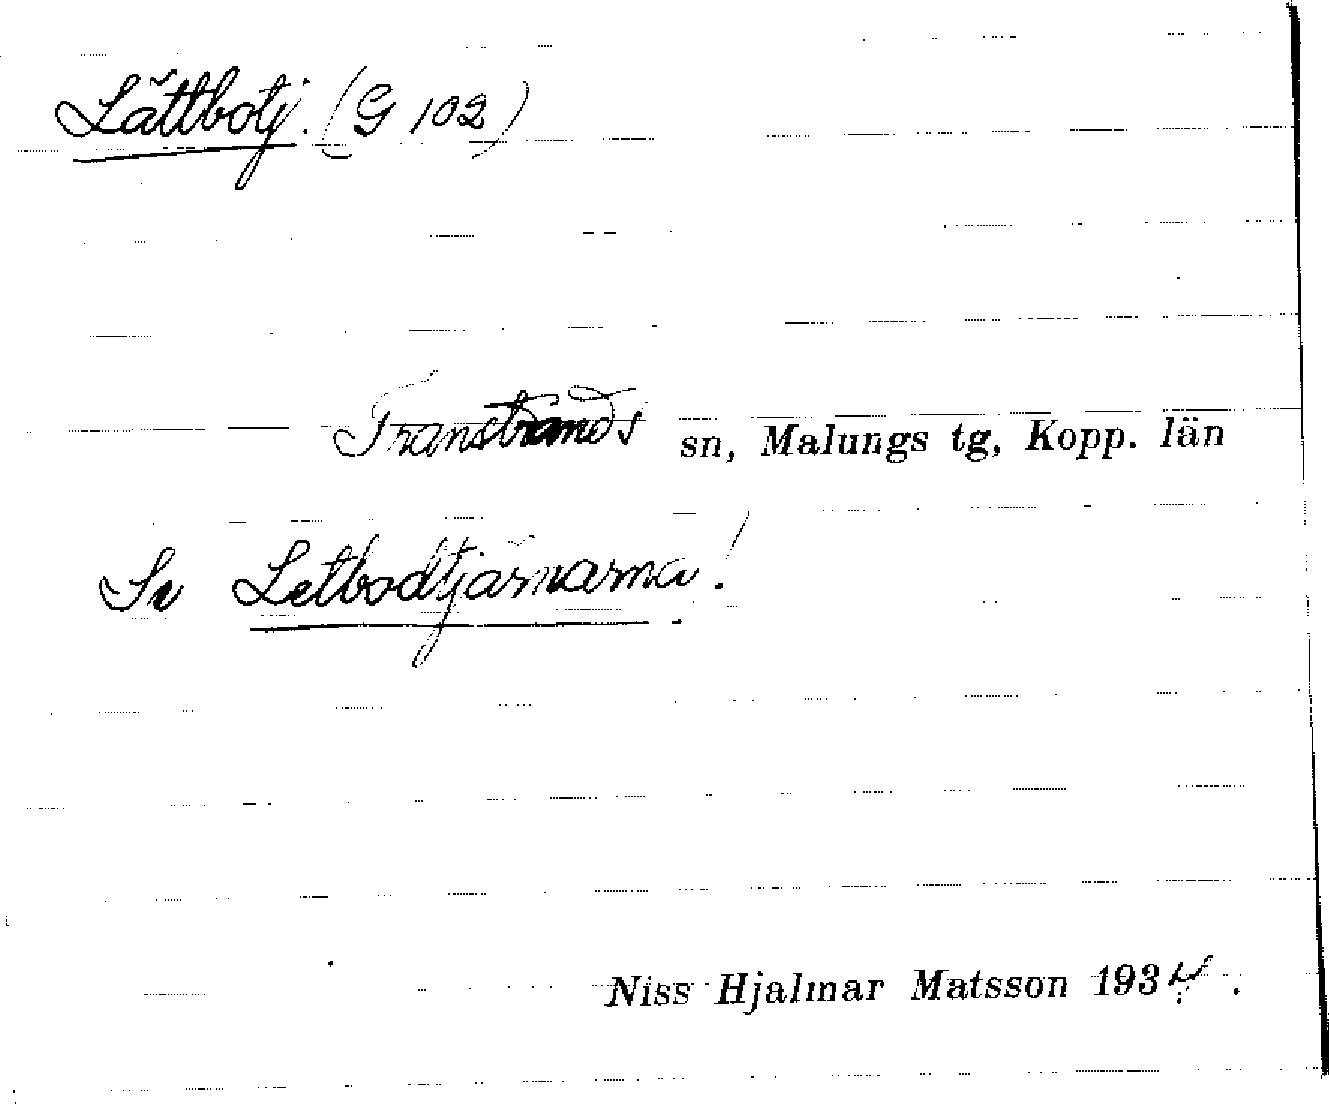 Lättbotj. (G 102)
Transtrands sn, Malungs tg, Kopp. län
Se Letbodtjärnarna!
Niss Hjalmar Matsson 1934.